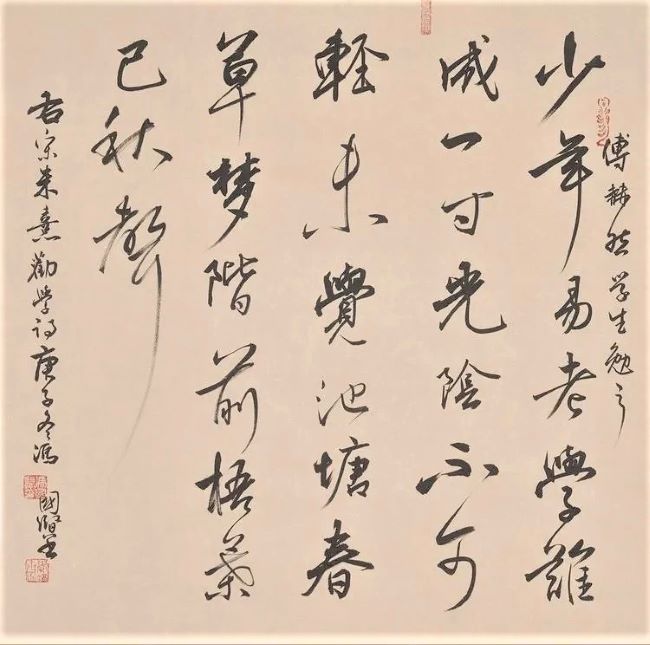 傅赫然学生勉之
少年易老學難
成一寸光陰不可
輕未覺池塘春
草梦階前梧葉
已秋聲
右宋朱熹勸學诗庚子冬馮
國